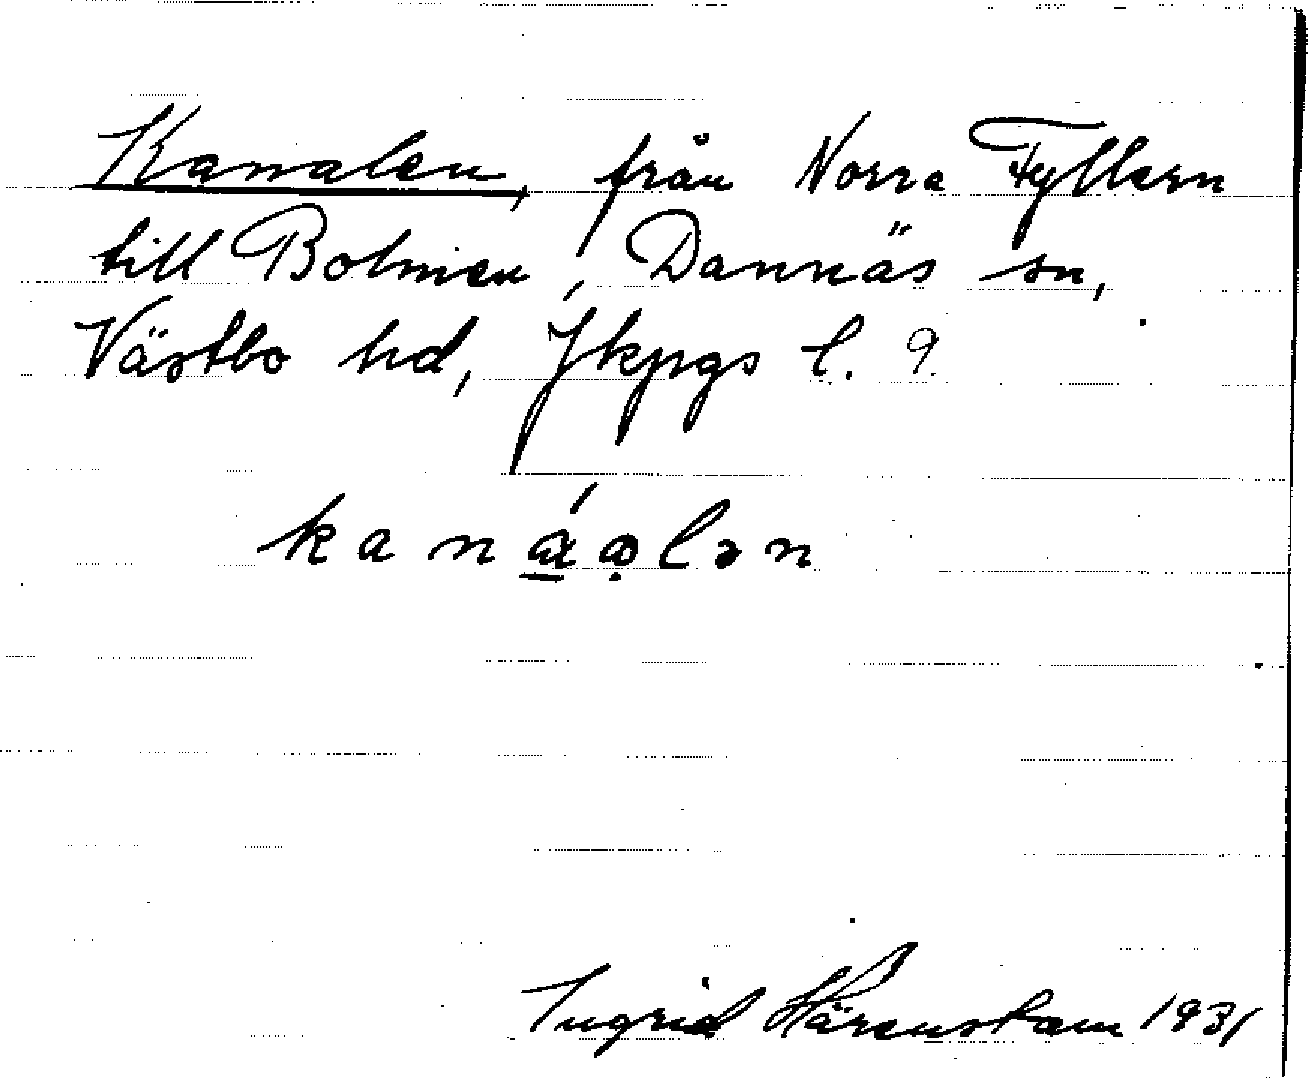 Kanalen, från Norra Fyllern
till Bolmen, Dannäs sn,
Västbo hd, Jkpgs l. 9.
kaná̱ọlən
Ingrid Härenstam 1931